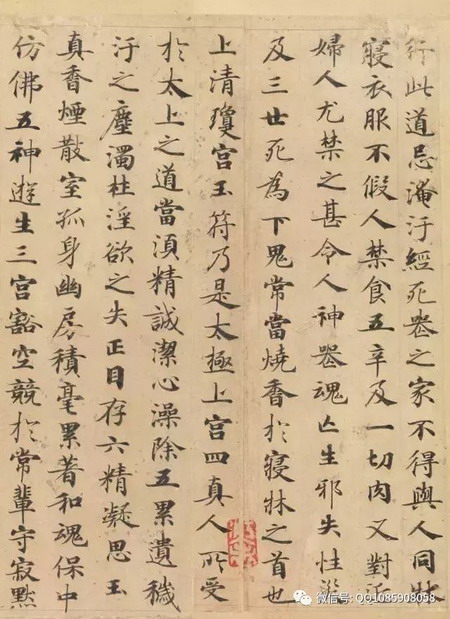 行此道忌淹汙經死喪之家不得與人同牀
寢衣服不假人禁食五辛及一切肉又對近
婦人尤禁之甚令人神喪魂亡生邪失性災
及三世死為下鬼常當燒香於寢牀之首也
上清瓊宮玉符乃是太極上宮四真人所受
於太上之道當須精誠潔心澡除五累遺穢
汙之塵濁杜淫欲之失正目存六精凝思玉
真香煙散室孤身幽房積毫累著和魂保中
仿佛五神遊生三宮豁空競於常輩守寂默
微信号: QQ1085908058